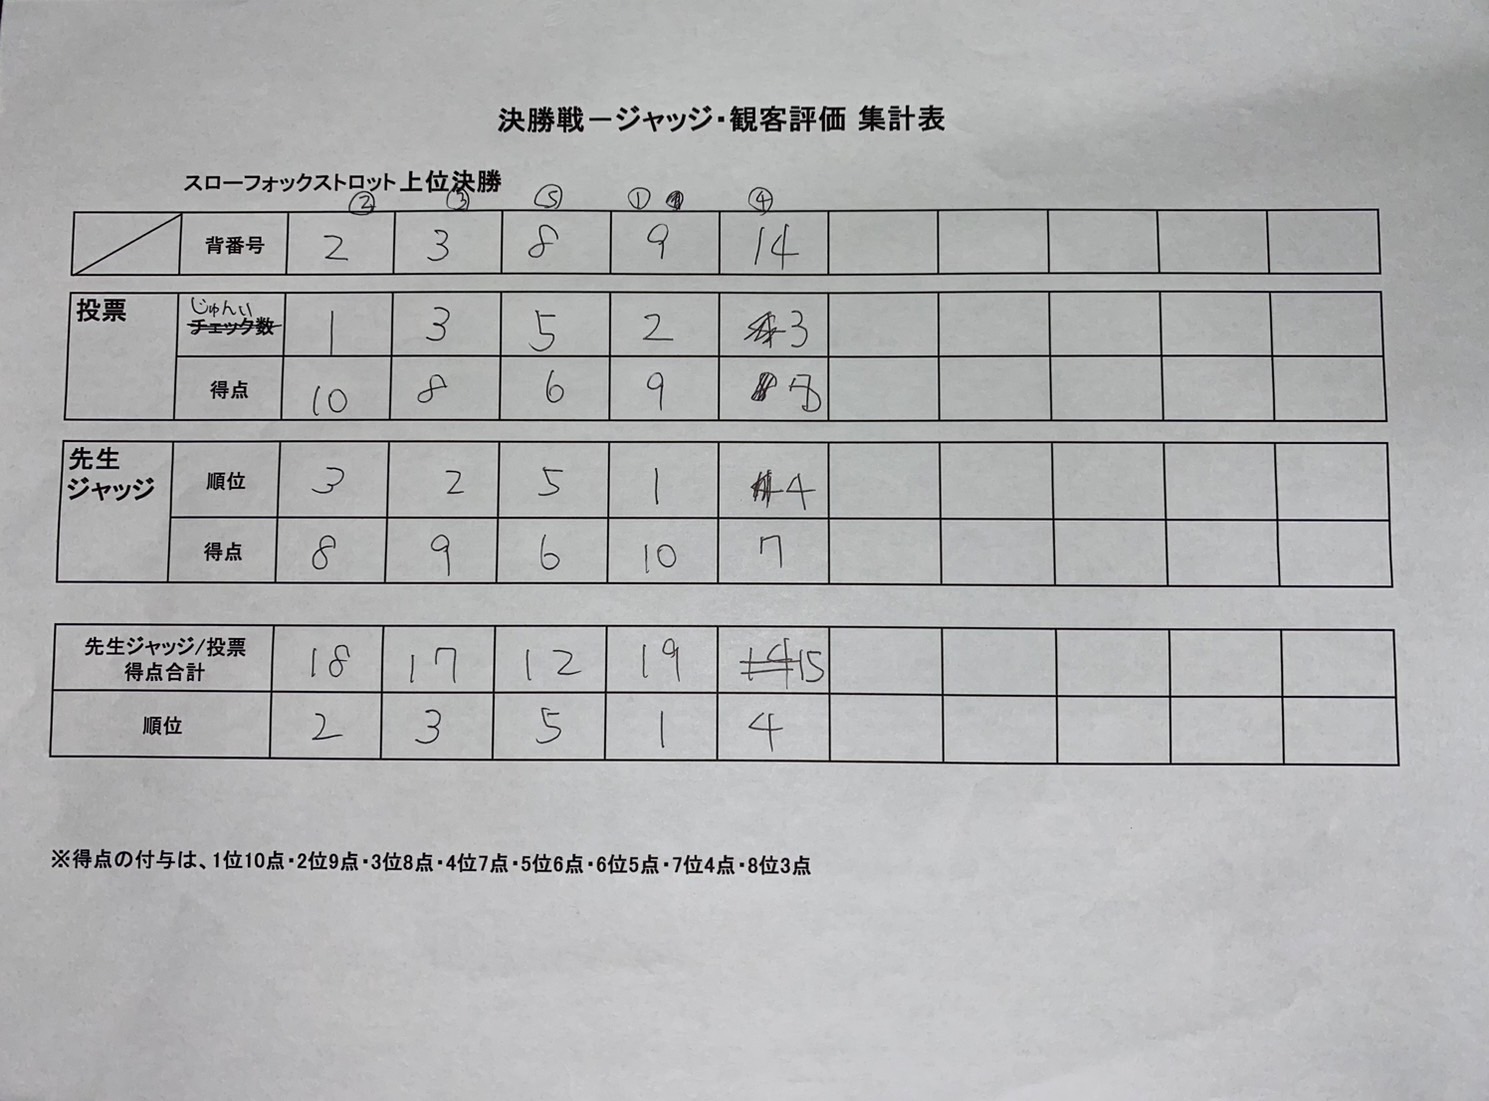 決勝戦－ジャッジ・観客評価 集計表
スローフォックストロット 上位決勝
② ③ ⑤ ① ④
背番号 2 3 8 9 14
投票 じゅんい チェック数 1 3 5 2 3
得点 10 8 6 9 8
先生ジャッジ 順位 3 2 5 1 4
得点 8 9 6 10 7
先生ジャッジ/投票 得点合計 18 17 12 19 14 15
順位 2 3 5 1 4
※得点の付与は、1位10点・2位9点・3位8点・4位7点・5位6点・6位5点・7位4点・8位3点